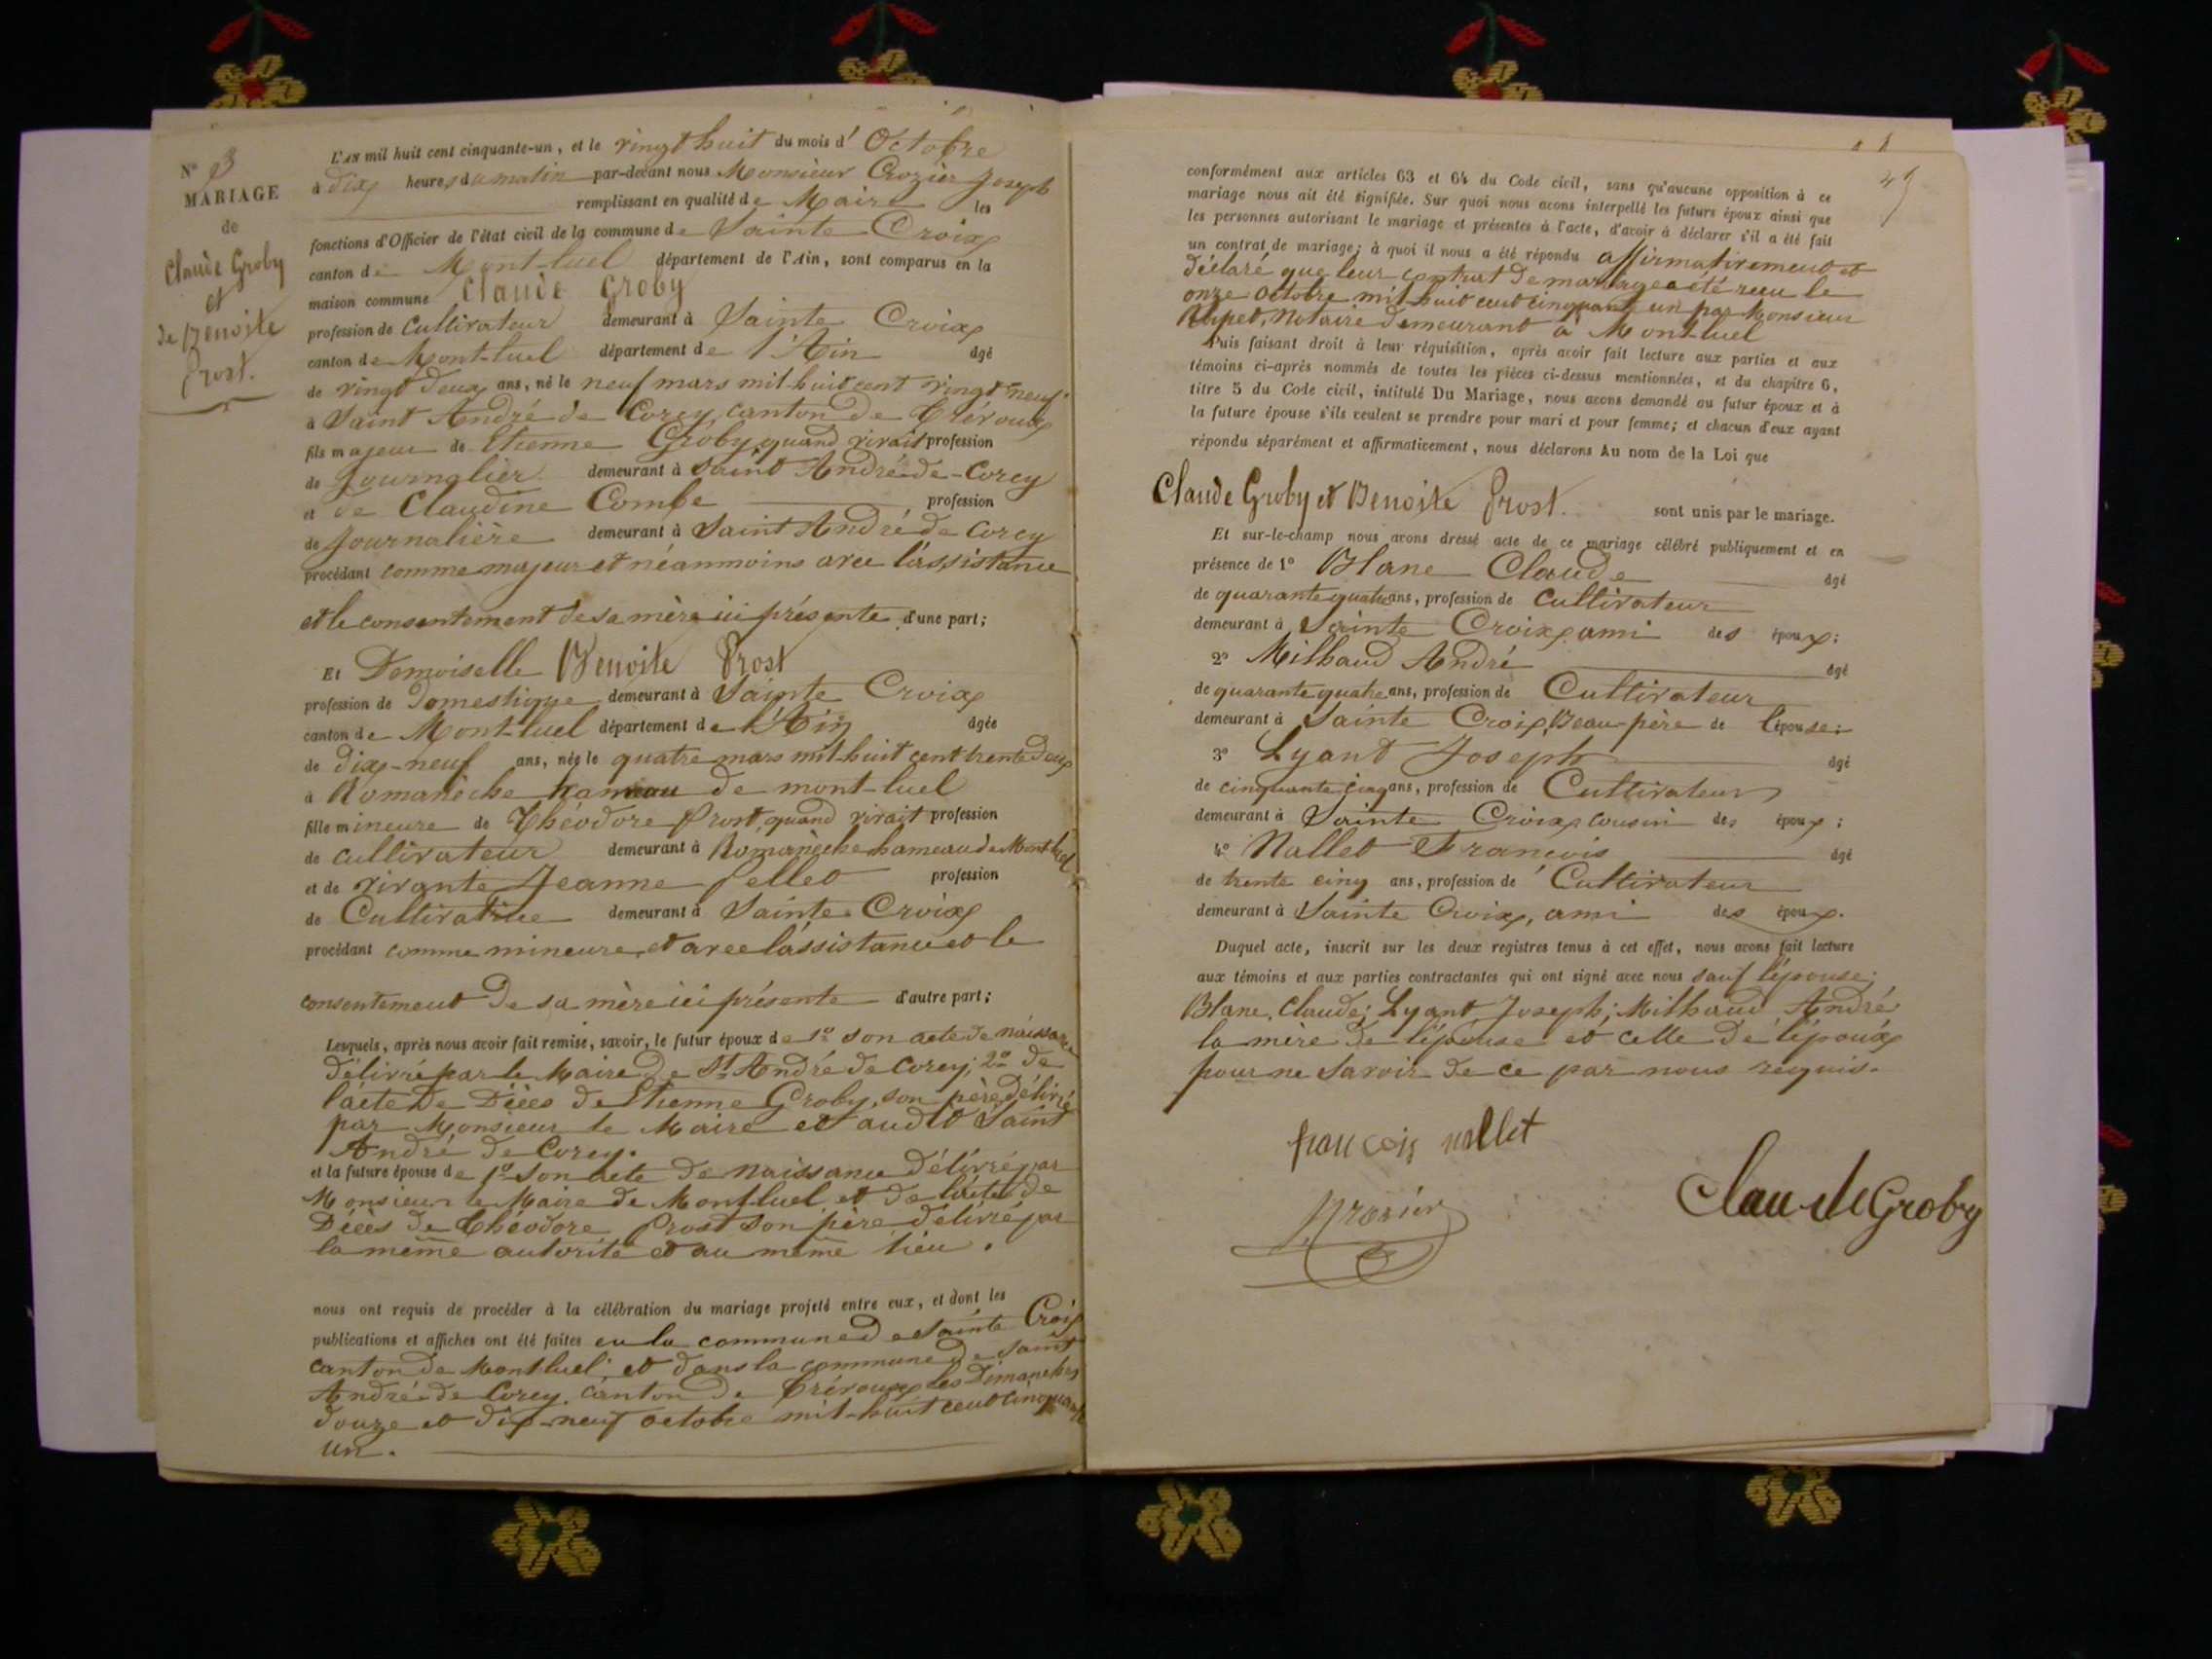 N° 3
MARIAGE
de
Claude Groby
et
de Benoite
Prost.
L'AN mil huit cent cinquante-un, et le vingt huit du mois d' Octobre
à dix heures du matin par-devant nous Monsieur Crozier Joseph
remplissant en qualité de Maire les
fonctions d'Officier de l'état civil de la commune de Sainte Croix
canton de Mont-luel département de l'Ain, sont comparus en la
maison commune Claude Groby
profession de Cultivateur demeurant à Sainte Croix
canton de Mont-luel département de l'Ain âgé
de vingt deux ans, né le neuf mars mil-huit cent vingt neuf
à Saint André de Corcy, canton de Trévoux
fils majeur de Etienne Groby, quand vivait profession
de Journalier demeurant à Saint André-de-Corcy
et de Claudine Combe profession
de Journalière demeurant à Saint André de Corcy
procédant comme majeur et néanmoins avec l'assistance
et le consentement de sa mère ici présente d'une part;
Et Demoiselle Benoite Prost
profession de Domestique demeurant à Sainte Croix
canton de Mont-luel département de l'Ain âgée
de dix-neuf ans, née le quatre mars mil-huit cent trente deux
à Romanèche hameau de mont-luel
fille mineure de Théodore Prost, quand vivait profession
de cultivateur demeurant à Romanèche hameau de Mont-luel
et de vivante Jeanne Pellet profession
de Cultivatrice demeurant à Sainte Croix
procédant comme mineure et avec l'assistance et le
consentement de sa mère ici présente d'autre part;
Lesquels, après nous avoir fait remise, savoir, le futur époux de 1° son acte de naissance
délivré par le Maire de St André de Corcy; 2° de
l'acte de Décès de Etienne Groby, son père, délivré
par Monsieur le Maire et audit Saint
André de Corcy.
et la future épouse de 1° son acte de naissance délivré par
Monsieur le Maire de Montluel et de l'acte de
Décès de Théodore Prost son père délivré par
la même autorité et au même lieu.
nous ont requis de procéder à la célébration du mariage projeté entre eux, et dont les
publications et affiches ont été faites en la commune de Sainte Croix
canton de Montluel; et dans la commune de Saint
André-de Corcy, canton de Trévoux les Dimanches
douze et dix-neuf octobre mil-huit cent cinquante
un.
45
conformément aux articles 63 et 64 du Code civil, sans qu'aucune opposition à ce
mariage nous ait été signifiée. Sur quoi nous avons interpellé les futurs époux ainsi que
les personnes autorisant le mariage et présentes à l'acte, d'avoir à déclarer s'il a été fait
un contrat de mariage; à quoi il nous a été répondu affirmativement et
déclaré que leur contrat de mariage a été reçu le
onze octobre mil-huit cent cinquante un par Monsieur
Notaire demeurant à Mont-luel
Puis faisant droit à leur réquisition, après avoir fait lecture aux parties et aux
témoins ci-après nommés de toutes les pièces ci-dessus mentionnées, et du chapitre 6,
titre 5 du Code civil, intitulé Du Mariage, nous avons demandé au futur époux et à
la future épouse s'ils veulent se prendre pour mari et pour femme; et chacun d'eux ayant
répondu séparément et affirmativement, nous déclarons Au nom de la Loi que
Claude Groby et Benoite Prost. sont unis par le mariage.
Et sur-le-champ nous avons dressé acte de ce mariage célébré publiquement et en
présence de 1° Blanc Claude âgé
de quarante quatre ans, profession de cultivateur
demeurant à Sainte Croix, ami des époux;
2° Milhaud André âgé
de quarante quatre ans, profession de Cultivateur
demeurant à Sainte Croix, Beau-père de l'épouse;
3° Lyant Joseph âgé
de cinquante cinq ans, profession de Cultivateur
demeurant à Sainte Croix cousin des époux;
4° Nallet François âgé
de trente cinq ans, profession de Cultivateur
demeurant à Sainte Croix, ami des époux.
Duquel acte, inscrit sur les deux registres tenus à cet effet, nous avons fait lecture
aux témoins et aux parties contractantes qui ont signé avec nous sauf l'épouse;
Blanc, Claude; Lyant Joseph; Milhaud André
la mère de l'épouse et celle de l'époux
pour ne savoir de ce par nous requis.
françois nallet
Crozier
Claude Groby